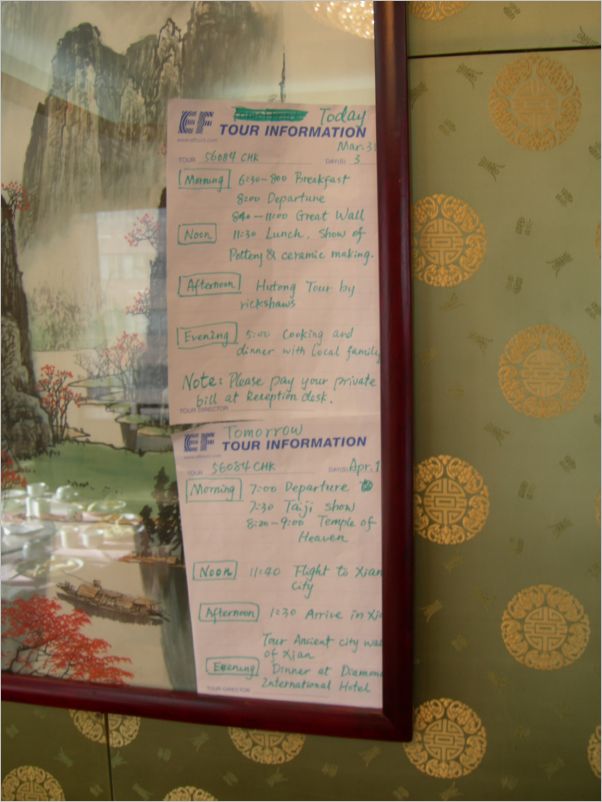 EF Today
TOUR INFORMATION
Mar. 31
TOUR 56084 CHK DAY(S) 3
Morning 6:30-800 Breakfast
8:00 Departure
840-11:00 Great Wall
Noon 11:30 Lunch. Show of
Pottery & ceramic making.
Afternoon Hutong Tour by
rickshaws
Evening 5:00 Cooking and
dinner with local family
Note: Please pay your private
bill at Reception desk.
TOUR DIRECTOR
EF Tomorrow
TOUR INFORMATION
TOUR 56084 CHK DAY(S) Apr. 1
Morning 7:00 Departure
7:30 Taiji show
8:20-9:00 Temple of
Heaven
Noon 11:40 Flight to Xian
City
Afternoon 1:30 Arrive in Xi
Tour Ancient city wa
of Xian
Evening Dinner at Diamon
International Hotel
TOUR DIRECTOR